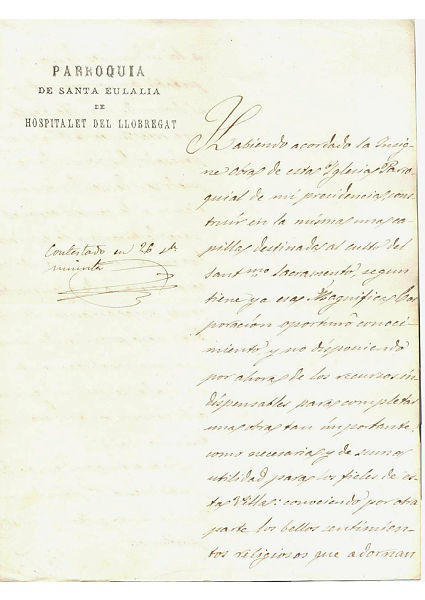 PARROQUIA
DE SANTA EULALIA
DE
HOSPITALET DEL LLOBREGAT
Contestado en 26 
minuta
Habiendo acordado la Insig-
ne obra de esta Yglesia Parro-
quial de mi presidencia cons-
truir en la misma una ca-
pilla destinada al culto del
Sant.mo Sacramento, segun
tiene ya esa Magnifica Cor-
poracion oportuno conoci-
miento, y no disponiendo
por ahora de los recursos in-
dispensables para completar
una obra tan importante
como necesaria y de suma
utilidad para los fieles de es-
ta Villa: conociendo por otra
parte los bellos sentimien-
tos religiosos que adornan